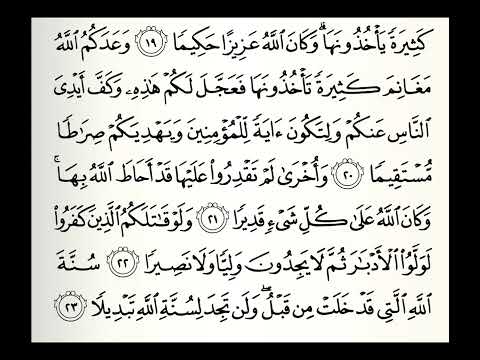 كَثِيرَةً يَأْخُذُونَهَا ۗ وَكَانَ ٱللَّهُ عَزِيزًا حَكِيمًا ١٩ وَعَدَكُمُ ٱللَّهُ
مَغَانِمَ كَثِيرَةً تَأْخُذُونَهَا فَعَجَّلَ لَكُمْ هَٰذِهِۦ وَكَفَّ أَيْدِىَ
ٱلنَّاسِ عَنكُمْ وَلِتَكُونَ ءَايَةً لِّلْمُؤْمِنِينَ وَيَهْدِيَكُمْ صِرَٰطًا
مُّسْتَقِيمًا ٢٠ وَأُخْرَىٰ لَمْ تَقْدِرُوا۟ عَلَيْهَا قَدْ أَحَاطَ ٱللَّهُ بِهَا ۚ
وَكَانَ ٱللَّهُ عَلَىٰ كُلِّ شَىْءٍ قَدِيرًا ٢١ وَلَوْ قَٰتَلَكُمُ ٱلَّذِينَ كَفَرُوا۟
لَوَلَّوُا۟ ٱلْأَدْبَٰرَ ثُمَّ لَا يَجِدُونَ وَلِيًّا وَلَا نَصِيرًا ٢٢ سُنَّةَ
ٱللَّهِ ٱلَّتِى قَدْ خَلَتْ مِن قَبْلُ ۖ وَلَن تَجِدَ لِسُنَّةِ ٱللَّهِ تَبْدِيلًا ٢٣